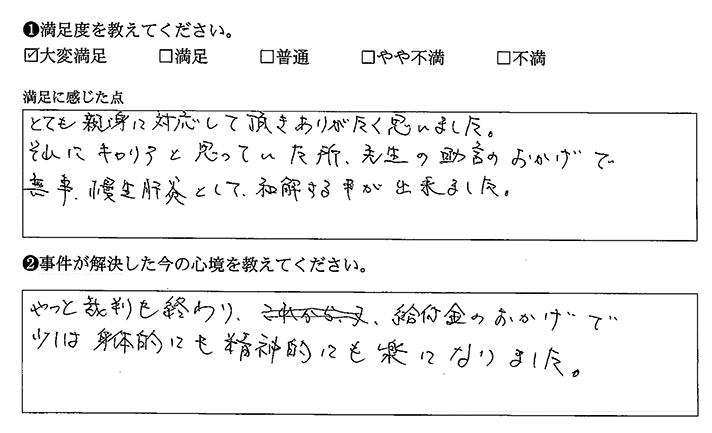 ❶満足度を教えてください。
☑大変満足 □満足 □普通 □やや不満 □不満
満足に感じた点
とても親身に対応して頂きありがたく思いました。
それにキャリアと思っていた所、先生の助言のおかげで
無事、慢生肝炎として、和解する事が出来ました。
❷事件が解決した今の心境を教えてください。
やっと裁判も終わり、、給付金のおかげで
少しは身体的にも精神的にも楽になりました。